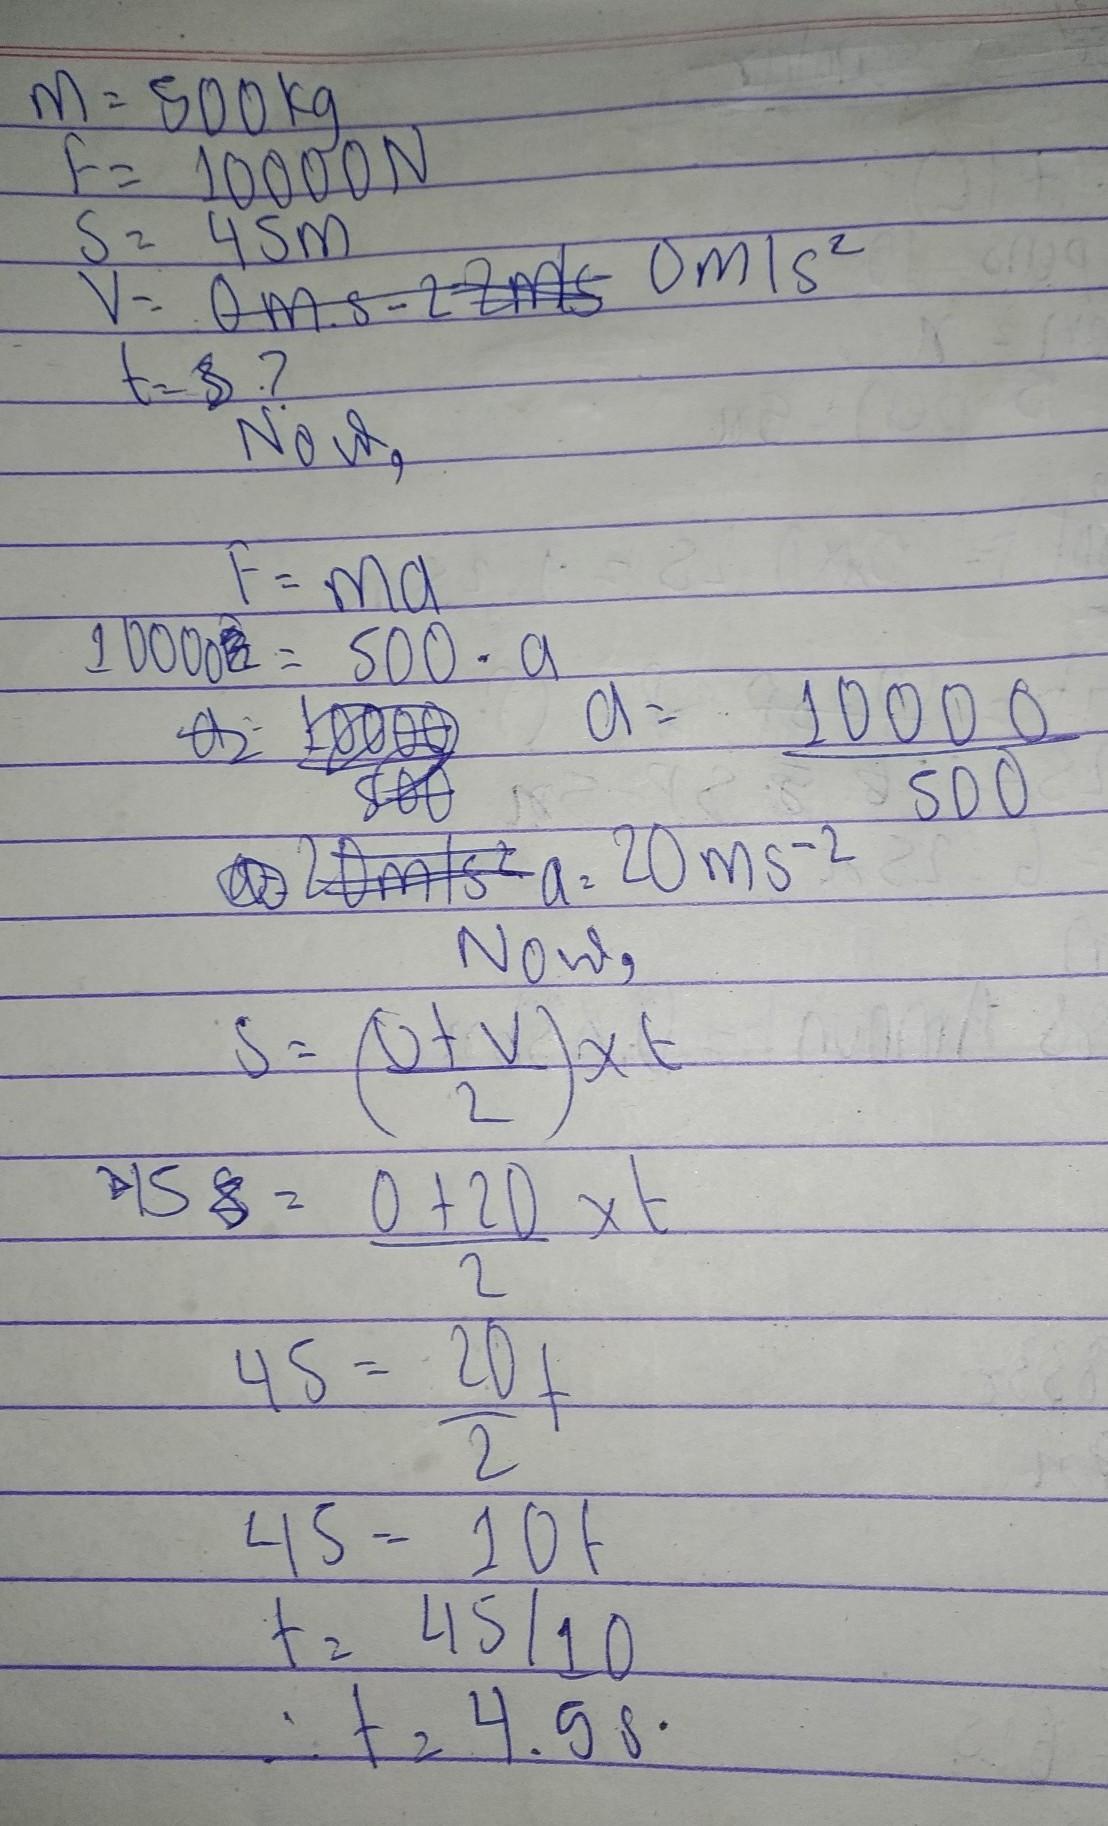 m = 500kg
F = 10000N
S = 45m
V = 0m.s-2 2m/s 0m/s²
t = ?
Now,
F = ma
10000 = 500 . a
a = 10000/500 a = 10000/500
a = 20m/s² a = 20ms⁻²
Now,
S = (U+V/2) x t
45 = 0+20/2 x t
45 = 20/2 t
45 = 10t
t = 45/10
∴ t = 4.5s.